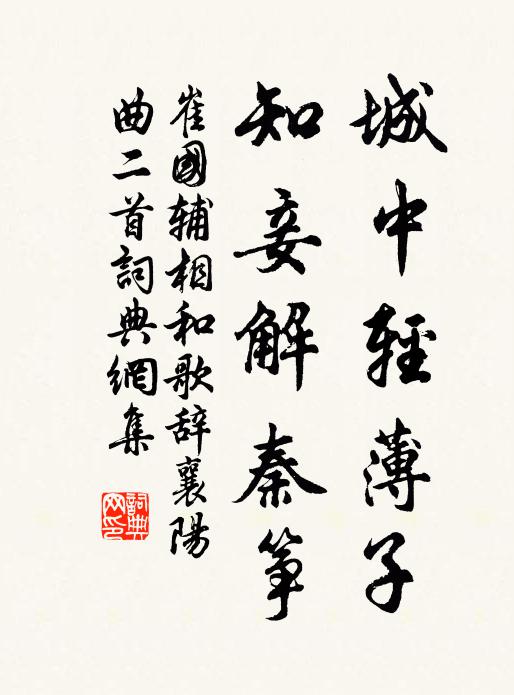 城中輕薄子
知妾解秦筝
崔國辅相和歌辞襄陽
曲二首詞典網集
詞典
网印